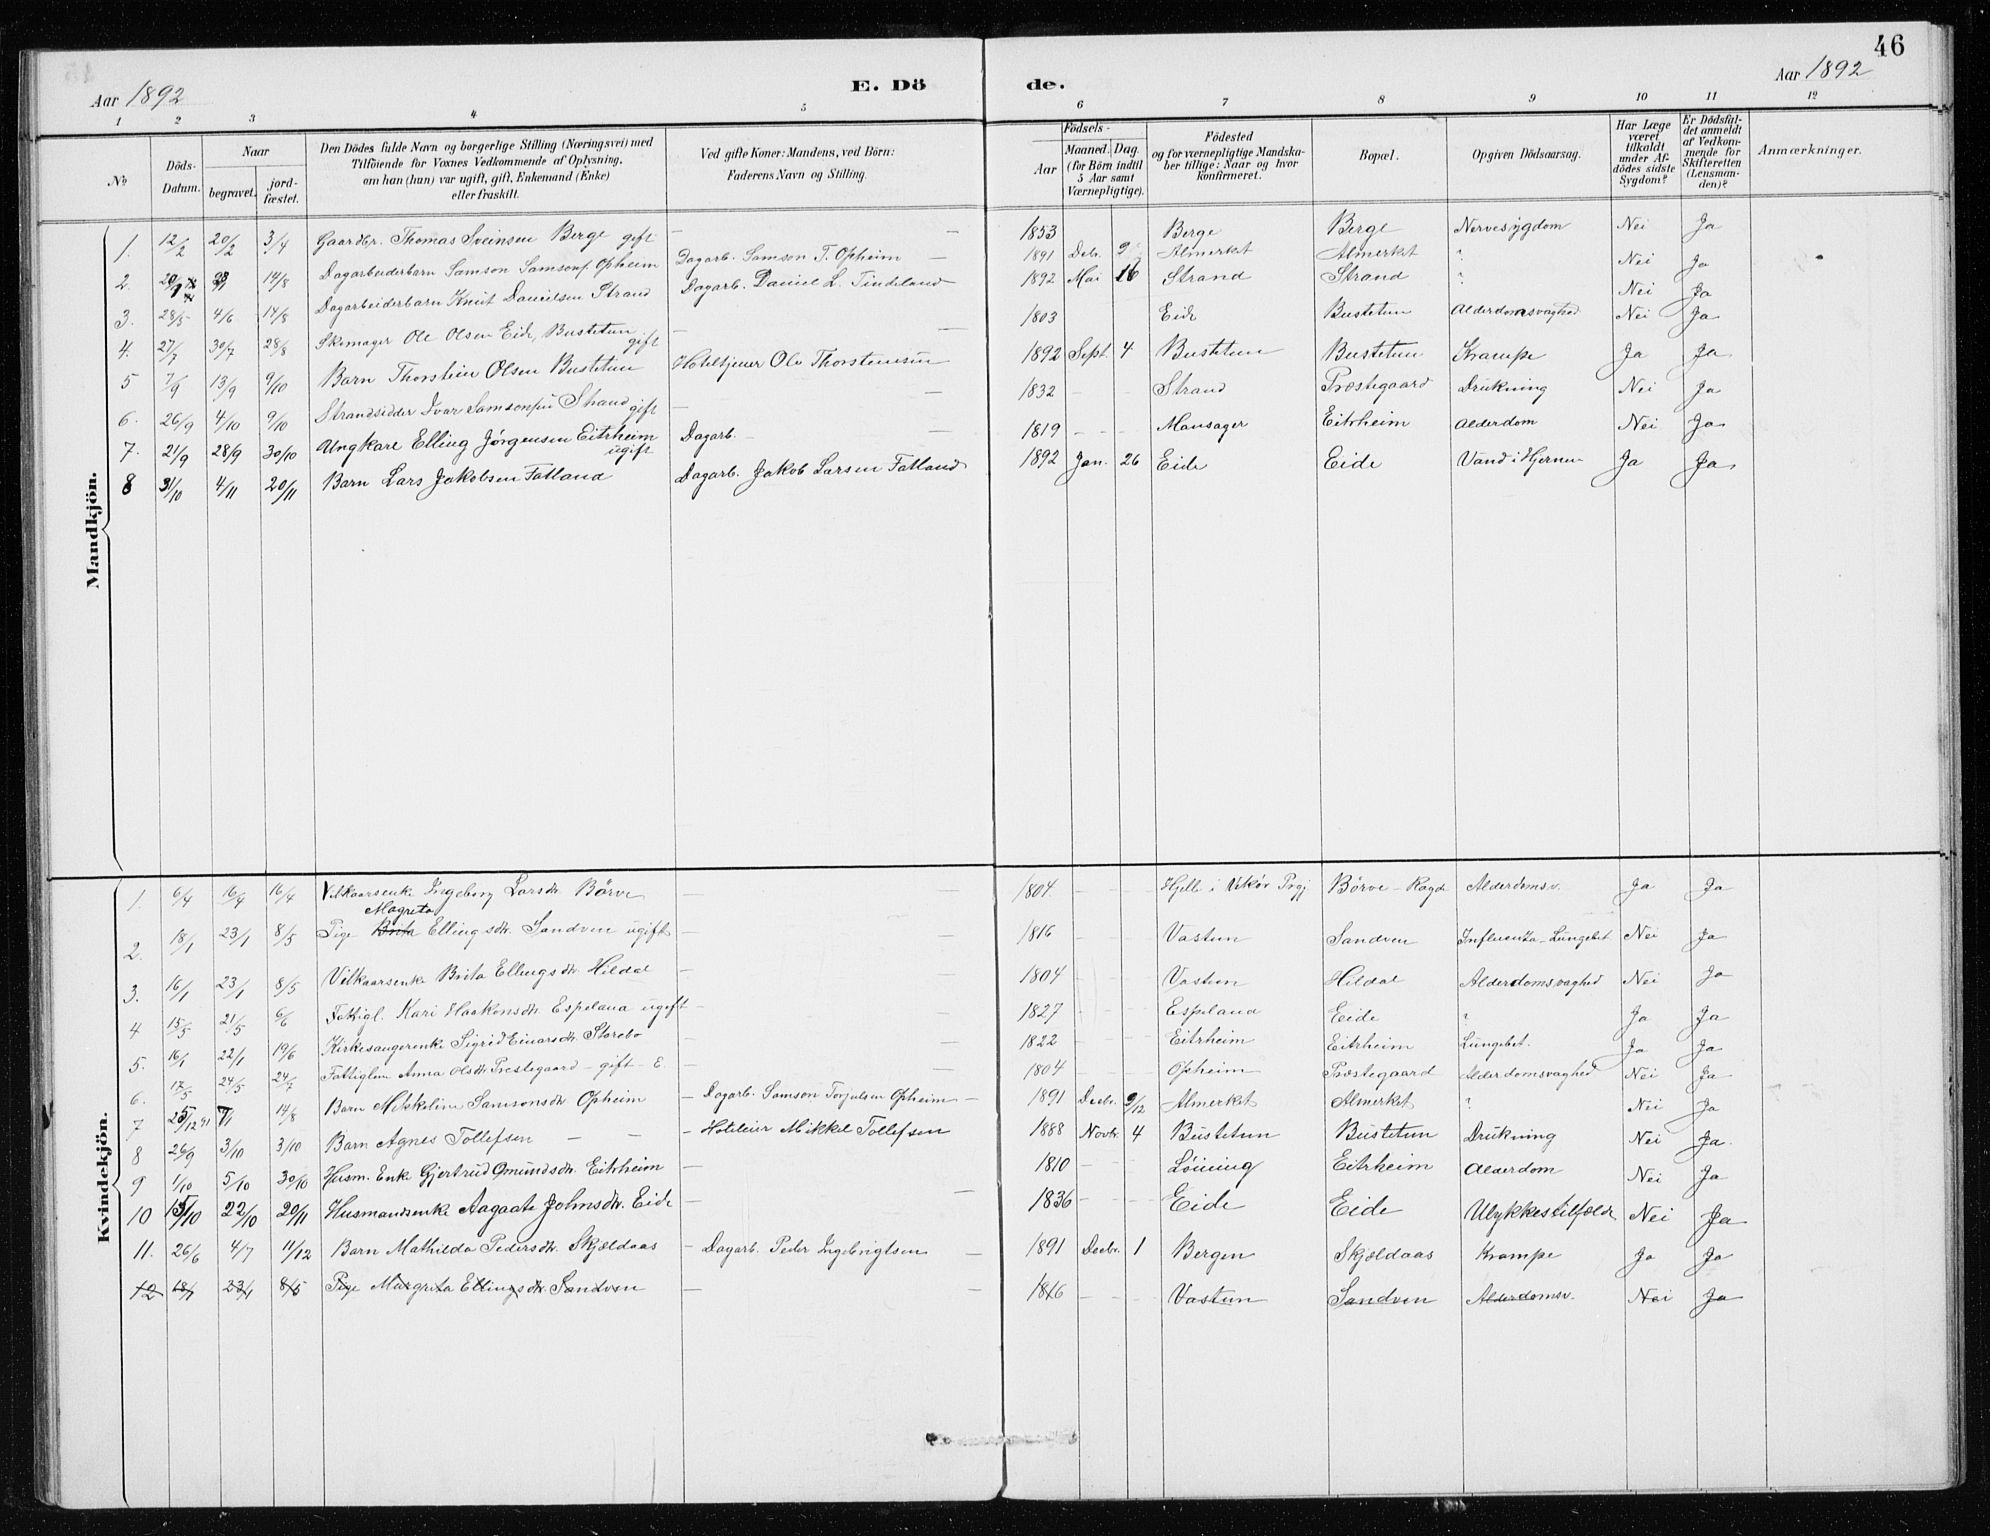 46
Aar 1892 E. Dö de. Aar 1892
1 2 3 4 5 6 7 8 9 10 11 12
No
Döds-Datum.
Naar
begravet.
jord-fæstet.
Den Dödes fulde Navn og borgerlige Stilling (Næringsvei) med
Tilföiende for Voxnes Vedkommende af Oplysning,
om han (hun) var ugift, gift, Enkemand (Enke)
eller fraskilt.
Ved gifte Koner: Mandens, ved Börn:
Faderens Navn og Stilling.
Födsels-
Aar
Maaned. Dag.
(for Börn indtil
5 Aar samt
Værnepligtige).
Födested
og for værnepligtige Mandska-
ber tillige: Naar og hvor
konfirmeret.
Bopæl.
Opgiven Dödsaarsag.
Har Læge
været
tilkaldt
under Af-
dödes sidste
Sygdom?
Er Dödsfal-
det anmeldt
af Vedkom-
mende for
Skifteretten
(Lensman-
den)?
Anmærkninger.
Mandkjön.
1. 12/2 20/2 3/4 Gaardbr. Thomas Sveinsen Berge gift — — 1853 Berge Berge Nervesygdom Nei Ja
2. 14/8 Dagarbeiderbarn Samson Samsons. Opheim Dagarb. Samson T. Opheim — 1891 Debr. 9 Almerket Almerket ? Nei Ja
3. 28/5 4/6 14/8 Dagarbeiderbarn Knut Danielsen Strand Dagarb. Daniel L. Tindeland 1892 Mai 16 Strand Strand ? Nei Ja
4. 27/7 30/7 28/8 Skomager Ole Olsen Eide, Bustetun gift — — 1803 Eide Bustetun Alderdomsvaghed Nei Ja
5 7/9 13/9 9/10 Barn Thorstein Olsen Bustetun Hoteltjener Ole Thorstensen 1892 Sept. 4 Bustetun Bustetun Krampe Ja Ja
6. 26/9 4/10 9/10 Strandsidder Ivar Samsonsen Strand gift — — 1832 - - Strand Præstegaard Drukning Nei Ja
7. 21/9 28/9 30/10 Ungkarl Elling Jørgensen Eitrheim ugift Dagarb. — — 1819 - - Mansager Eitrheim Alderdom Nei Ja
8 31/10 4/11 20/11 Barn Lars Jakobsen Fatland Dagarb. Jakob Larsen Fatland 1892 Jan. 26 Eide Eide Vand i Hjernen Ja Ja
Kvindekjön.
1. 6/4 16/4 16/4 Vilkaarsenke Ingeborg Larsdtr. Börve — — 1804. - - Hjelle i Vikør Prgj Börve - Ragde Alderdomsv. Ja Ja
Magreta
2. 18/1 23/1 8/5 Pige Brita Ellingsdtr. Sandven ugift — — 1816 - - Vastun Sandven Influenza - Lungebet Nei Ja
3. 16/1 23/1 8/5 Vilkaarsenke Brita Ellingsdtr. Hildal — — 1804 - - Vastun Hildal Alderdomsvaghed Nei Ja
4 15/5 21/5 6/6 Fattigl. Kari Haakonsdtr. Espeland ugift — — 1827 - - Espeland Eide ? Ja Ja
5. 16/1 22/1 19/6 Kirkesangerenke Sigrid Einarsdtr. Storebø — — 1822 - - Eitrheim Eitrheim Lungebet. Ja Ja
6. 17/5 24/5 24/7 Fattiglem Anna Olsdtr Prestegaard - gift - E — — 1804 - - Opheim Præstegaard Alderdomsvaghed Nei Ja
7 25/12 91 7/1 14/8 Barn Mikkeline Samsonsdtr. Opheim — Dagarb. Samson Torjulsen Opheim — 1891 Decbr. 9/12 Almerket Almerket ? Nei Ja
8 26/9 3/10 3/10 Barn Agnes Tollefsen — — — Hoteleier Mikkel Tollefsen 1888 Novbr. 4 Bustetun Bustetun Drukning Nei Ja.
9 1/10 5/10 30/10 Husm. Enke Gjertrud Omundsdtr. Eitrheim — — 1810 - - Löining Eitrheim Alderdom Nei Ja
10 15/10 22/10 20/11 Husmandsenke Aagaate Johnsdtr. Eide — 1836 - - Eide Eide Ulykkestilfælde Nei Ja
11. 26/6 4/7 11/12 Barn Mathilda Pedersdtr. Skjældaas — Dagarb. Peder Ingebrigtsen — 1891 Decbr. 1 Bergen Skjældaas Krampe Ja Ja
12 18/1 23/1 8/5 Pige Margreta Ellingsdtr. Sandven — — 1816 - - Vastun Sandven Alderdomsv. Nei Ja